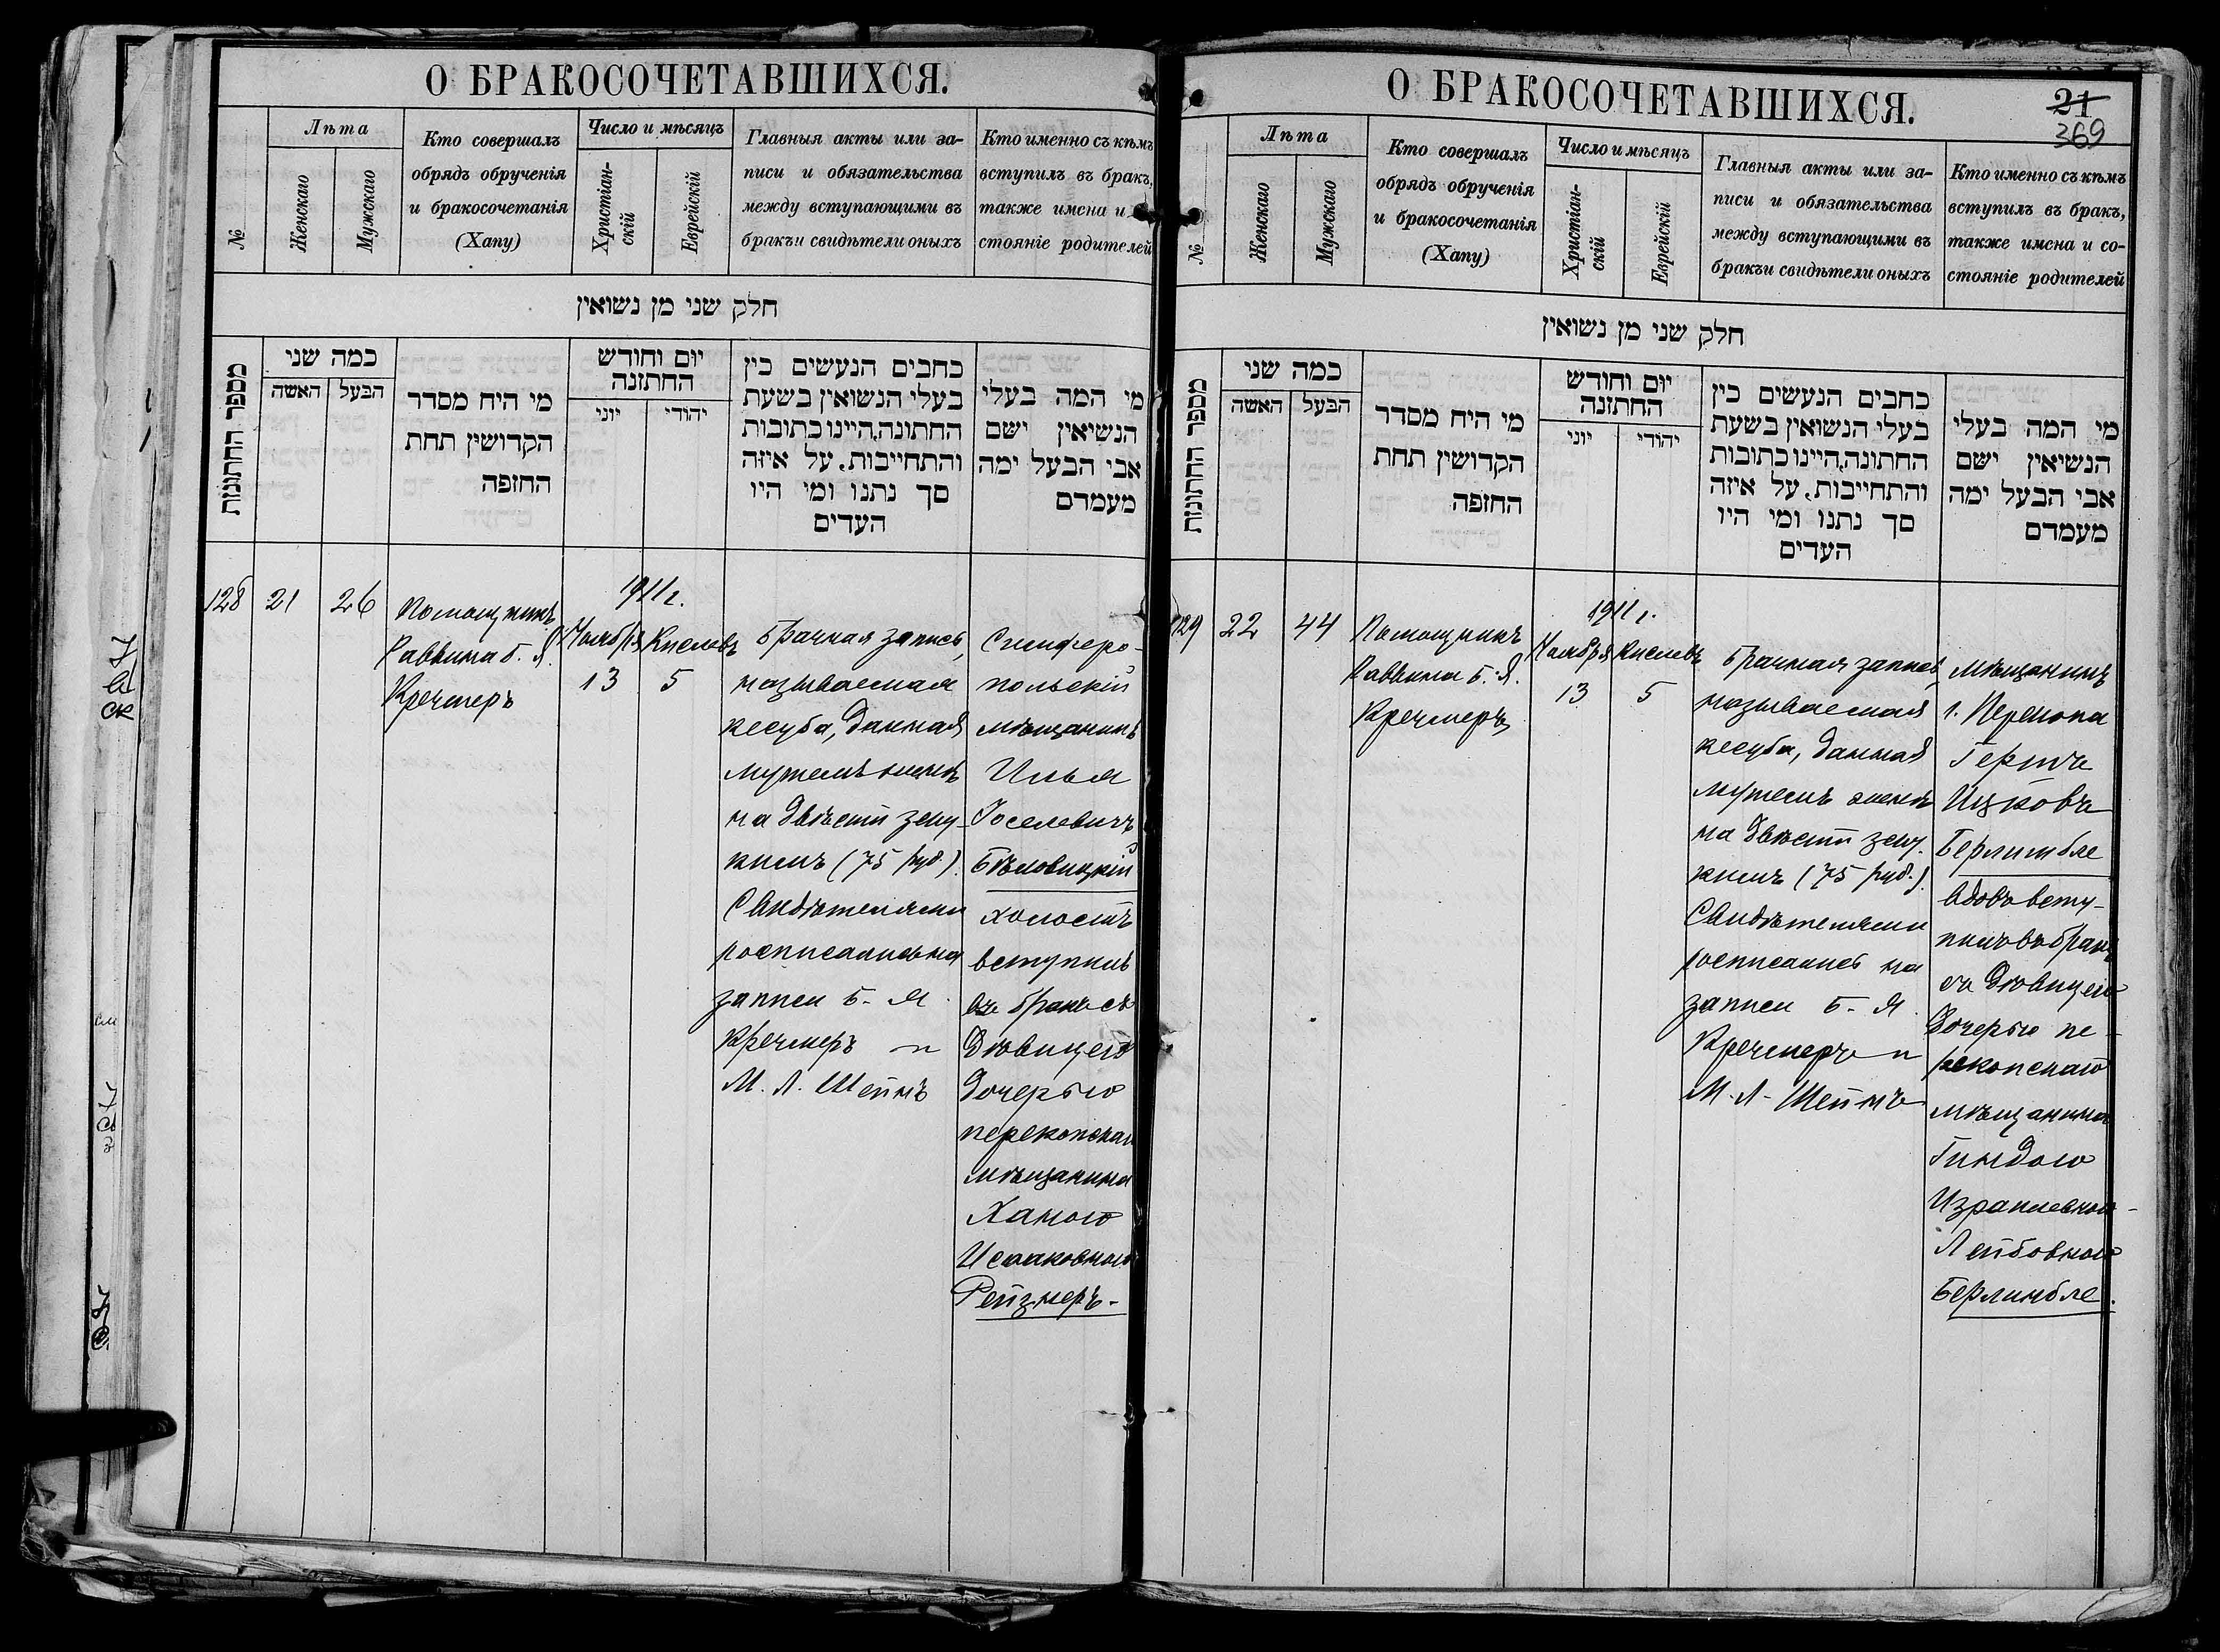 О БРАКОСОЧЕТАВШИХСЯ.
№
Лѣта
Женскаго
Мужскаго
Кто совершалъ
обрядъ обрученія
и бракосочетанія
(Хапу)
Число и мѣсяцъ
Христіан-
скій
Еврейскій
Главныя акты или за-
писи и обязательства
между вступающими въ
бракъ и свидѣтели оныхъ
Кто именно съ кѣмъ
вступилъ въ бракъ,
также имена и
стояніе родителей
חלק שני מן נשואין
מספר החתונות
כמה שני
האשה
הבעל
מי היח מסדר
הקדושין תחת
החופה
יום וחודש
החתונה
יוני
יהודי
כתבים הנעשים בין
בעלי הנשואין בשעת
החתונה, היינו כתובות
והתחייבות. על איזה
סך נתנו ומי היו
העדים
מי המה בעלי
הנשיאין ישם
אבי הבעל ימה
מעמדם
128
21
26
Помощникъ
Раввина Б. Я.
Кречмеръ
1911 г.
Ноября
13
Кислевъ
5
Брачная запись,
называемая
кесуба, данная
мужемъ женѣ
на двѣсти зеку-
кимъ (75 руб.).
Свидѣтелями
росписались на
записи Б. Я.
Кречмеръ и
М. Л. Шейнъ
Симферо-
польскій
мѣщанинъ
Илья
Іоселевичъ
Бѣловицкій
холостъ
вступилъ
въ бракъ съ
дѣвицею
дочерью
перекопскаго
мѣщанина
Ханою
Исааковною
Рейзнеръ.
О БРАКОСОЧЕТАВШИХСЯ.
21
369
№
Лѣта
Женскаго
Мужскаго
Кто совершалъ
обрядъ обрученія
и бракосочетанія
(Хапу)
Число и мѣсяцъ
Христіан-
скій
Еврейскій
Главныя акты или за-
писи и обязательства
между вступающими въ
бракъ и свидѣтели оныхъ
Кто именно съ кѣмъ
вступилъ въ бракъ,
также имена и со-
стояніе родителей
חלק שני מן נשואין
מספר החתונות
כמה שני
האשה
הבעל
מי היח מסדר
הקדושין תחת
החופה
יום וחודש
החתונה
יוני
יהודי
כתבים הנעשים בין
בעלי הנשואין בשעת
החתונה, היינו כתובות
והתחייבות. על איזה
סך נתנו ומי היו
העדים
מי המה בעלי
הנשיאין ישם
אבי הבעל ימה
מעמדם
129
22
44
Помощникъ
Раввина Б. Я.
Кречмеръ
1911 г.
Ноября
13
Кислевъ
5
Брачная запись,
называемая
кесуба, данная
мужемъ женѣ
на двѣсти зеку-
кимъ (75 руб.).
Свидѣтелями
росписались на
записи Б. Я.
Кречмеръ и
М. Л. Шейнъ
Мѣщанинъ
г. Перекопа
Гершъ
Ицковъ
Берлинбле
вдовъ всту-
пилъ въ бракъ
съ дѣвицею
дочерью пе-
рекопскаго
мѣщанина
Гиндою
Израилевной-
Лейбовною
Берлинбле.